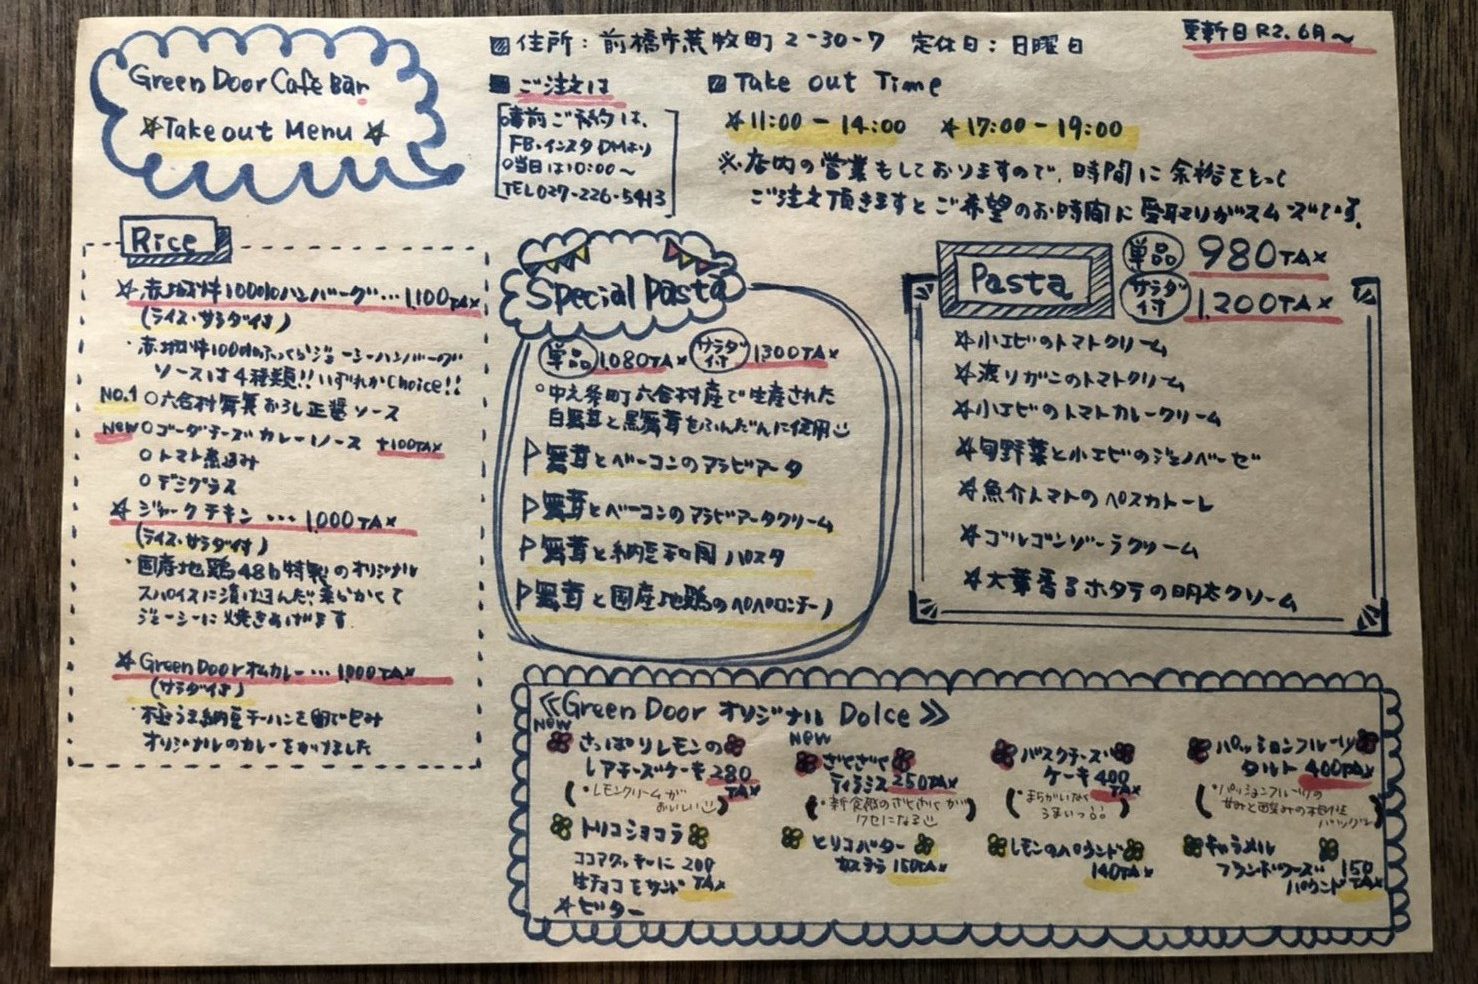 Green Door Cafe Bar
Takeout Menu
住所:前橋市荒牧町2-30-7 定休日:日曜日
更新日R2.6月〜
ご注文は
事前ご予約は、
FB・インスタDMより
当日は10:00〜
TEL027-226-5413
Take out Time
11:00-14:00 17:00-19:00
※店内の営業もしておりますので、時間に余裕をとって
ご注文頂きますとご希望のお時間に受取りがスムーズです。
Rice
赤城牛100%ハンバーグ…1,100TAX
(ライス・サラダ付)
・赤城牛100%ふっくらジューシーハンバーグ
ソースは4種類!!いずれかChoice!!
No.1 六合村舞茸おろし正醤ソース
New ゴーダチーズカレーソース +100TAX
トマト煮込み
デミグラス
ジャークチキン…1,000TAX
(ライス・サラダ付)
・国産地鶏48h特製のオリジナル
スパイスに漬け込んだ、柔らかくて
ジューシーに焼きあげます
Green Doorオムカレー…1,000TAX
(サラダ付)
・極うま納豆チャーハンを卵で包み
オリジナルのカレーをかけました
Special Pasta
単品 1,080TAX サラダ付 1,300TAX
中之条町六合村産で生産された
白舞茸と黒舞茸をふんだんに使用
舞茸とベーコンのアラビアータ
舞茸とベーコンのアラビアータクリーム
舞茸と納豆和風パスタ
舞茸と国産地鶏のペペロンチーノ
Pasta
単品 980TAX
サラダ付 1,200TAX
小エビのトマトクリーム
渡りガニのトマトクリーム
小エビのトマトカレークリーム
旬野菜と小エビのジェノベーゼ
魚介トマトのペスカトーレ
ゴルゴンゾーラクリーム
大葉香るホタテの明太クリーム
≪Green Door オリジナル Dolce≫
New
さっぱりレモンの
レアチーズケーキ 280
TAX
(・レモンクリームが
おいしい)
New
ざくざく
ティラミス 250TAX
(・新食感のざくざくが
クセになる)
バスクチーズ
ケーキ 400
TAX
(・まちがいなく
うまいっす。)
パッションフルーツ
タルト 400TAX
(・パッションフルーツの
甘みと酸みの相性
バツグン)
トリコショコラ
ココアクッキーに 200
生チョコをサンド TAX
ビター
トリコバター
カステラ 150TAX
レモンのパウンド
140TAX
キャラメル
フランボワーズ 150
パウンド TAX